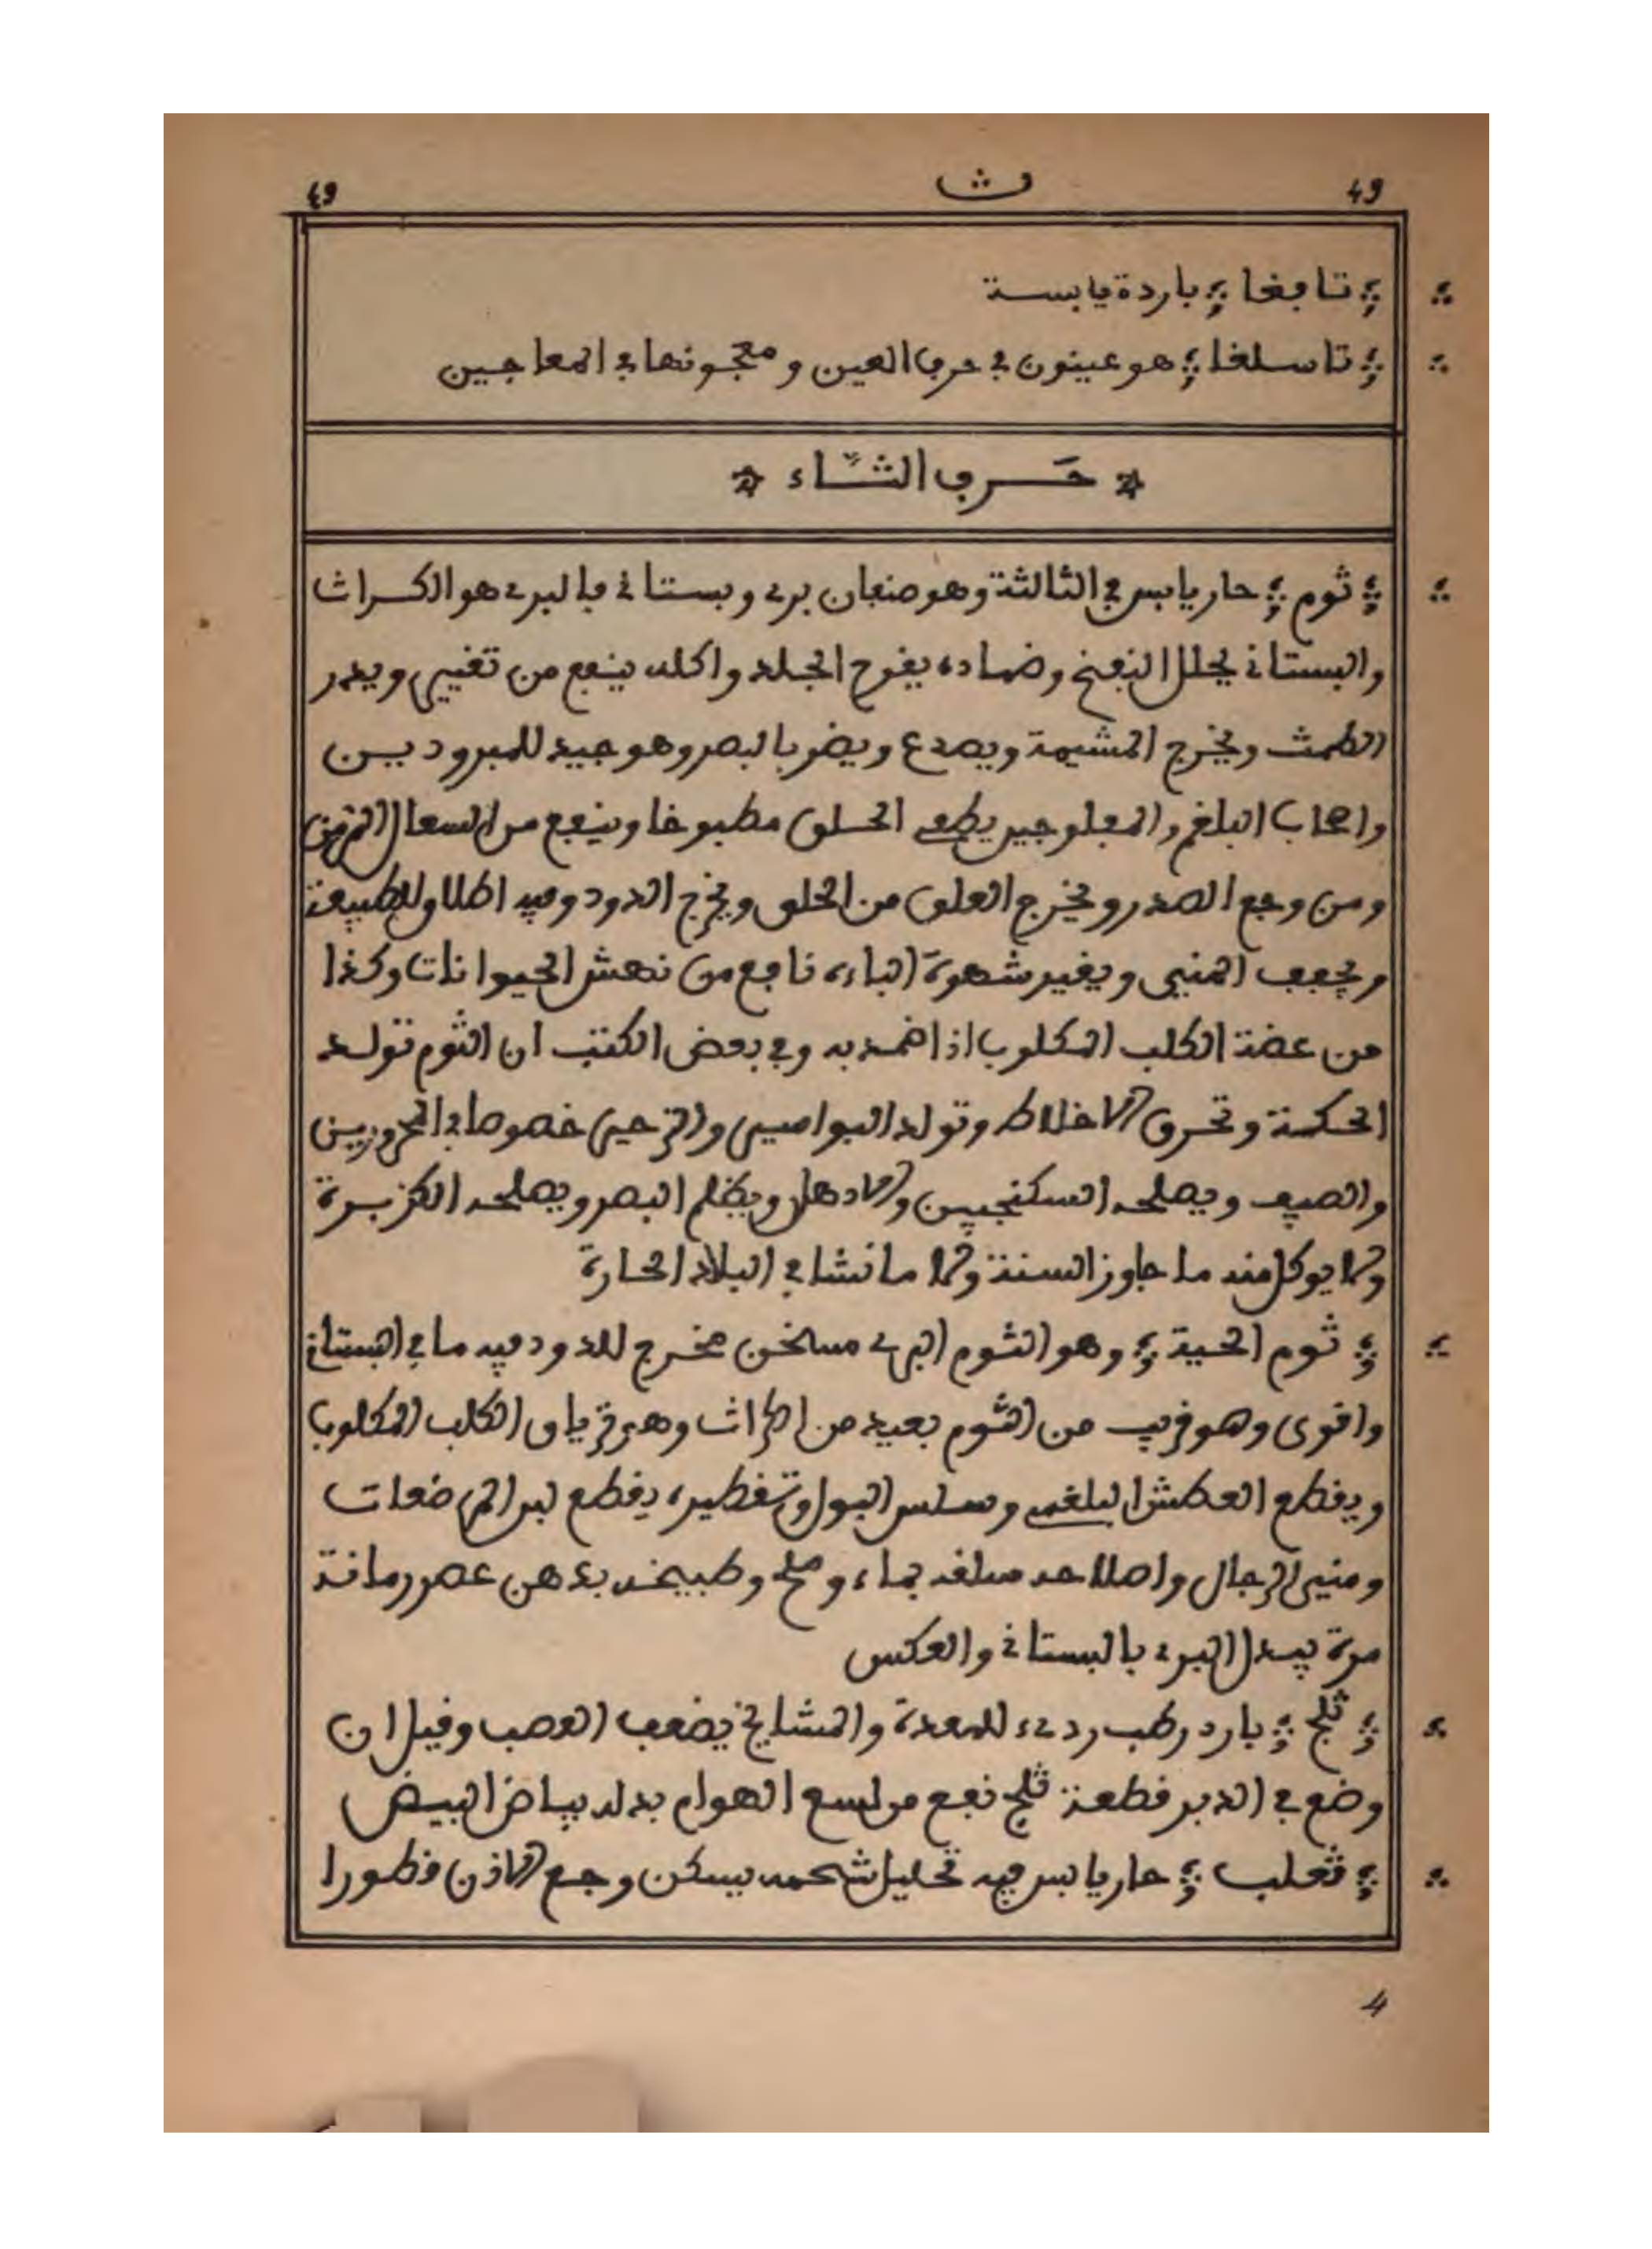 49 ث 49
تافغا باردة يابسة
تاسلغا هو عينون في حرف العين ومعجونها في المعاجين
حَرف الثّاء
ثوم حار يابس في الثالثة وهو صنفان بري وبستاني فالبري هو الكراث
والبستاني يحلل النفخ وضماده يقرح الجلد واكله ينفع من تغيير ويدر
الطمث ويخرج المشيمة ويصدع ويضر بالبصر وهو جيد للمبرودين
واصحاب البلغم والمفلوجين يصفي الحلق مطبوخا وينفع من السعال المزمن
ومن وجع الصدر ويخرج العلق من الحلق ويخرج الدود وفيه اطلاق للطبيعة
ويجفف المني ويغير شهوة الباءه نافع من نهش الحيوانات وكذا
من عضة الكلب المكلوب اذا ضمد به وفي بعض الكتب ان الثوم تولد
الحكة وتحرق الاخلاط وتولد البواسير والزحير خصوصا في المحرورين
والصيف ويصلحه السكنجبين والادهان ويظلم البصر ويصلحه الكزبرة
ولا يوكل منه ما جاوز السنة ولا ما نشا في البلاد الحارة
ثوم الحية وهو الثوم البري مسخن مخرج للدود فيه ما في البستاني
واقوى وهو قريب من الثوم بعيد من الكراث وهو ترياق الكلب المكلوب
ويقطع العطش البلغمي وسلس البول وتقطيره يقطع لبن المرضعات
ومني الرجال واصلاحه سلقه بماء وملح وطبيخه بدهن عصر رمانة
مرة يبدل البري بالبستاني والعكس
ثلج بارد رطب رديء للمعدة والمشايخ يضعف العصب وقيل ان
وضع في الدبر قطعة ثلج نفع من لسع الهوام بدله بياض البيض
ثعلب حار يابس فيه تحليل شحمه يسكن وجع الاذن قطورا
4